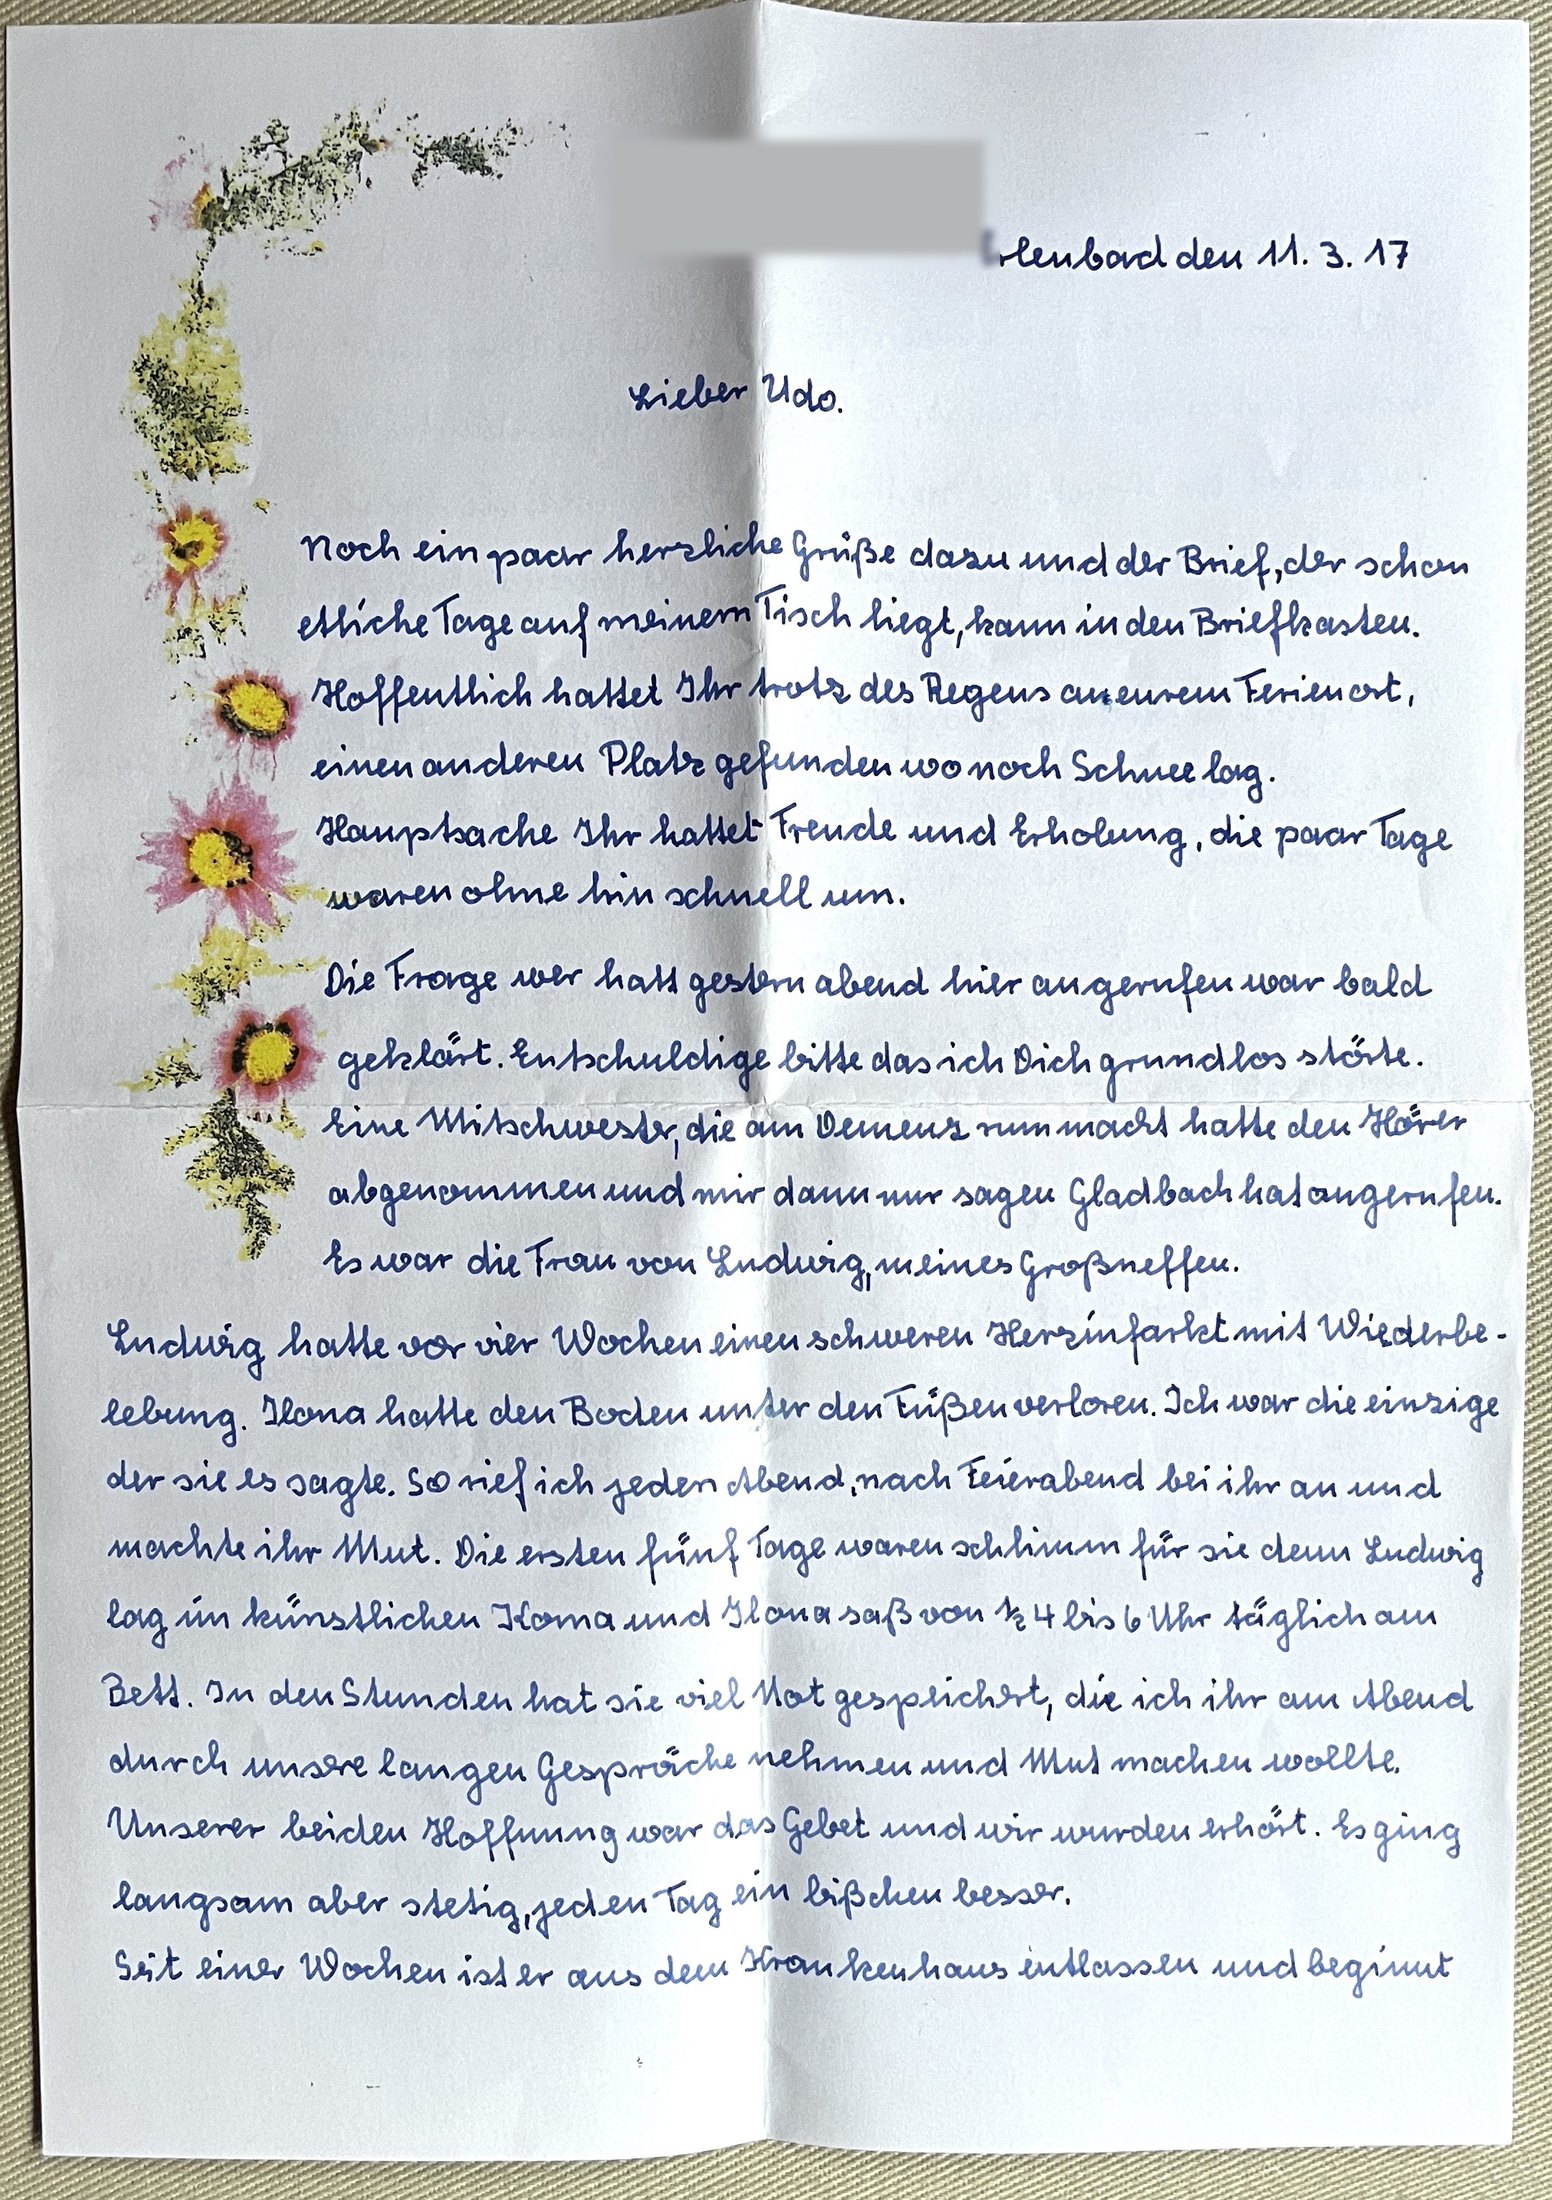 Erlenbad den 11. 3. 17
Lieber Udo.
Noch ein paar herzliche Grüße dazu und der Brief, der schon
etliche Tage auf meinem Tisch liegt, kann in den Briefkasten.
Hoffentlich hattet Ihr trotz des Regens an eurem Ferienort,
einen anderen Platz gefunden wo noch Schnee lag.
Hauptsache Ihr hattet Freude und Erholung, die paar Tage
waren ohne hin schnell um.
Die Frage wer hatt gestern abend hier angerufen war bald
geklärt. Entschuldige bitte das ich Dich grundlos störte.
Eine Mitschwester, die am Demenz rum macht hatte den Hörer
abgenommen und mir dann nur sagen Gladbach hat angerufen.
Es war die Frau von Ludwig, meines Großneffen.
Ludwig hatte vor vier Wochen einen schweren Herzinfarkt mit Wiederbe-
lebung. Ilona hatte den Boden unter den Füßen verloren. Ich war die einzige
der sie es sagte. So rief ich jeden Abend, nach Feierabend bei ihr an und
machte ihr Mut. Die ersten fünf Tage waren schlimm für sie denn Ludwig
lag im künstlichen Koma und Ilona saß von ½ 4 bis 6 Uhr täglich am
Bett. In den Stunden hat sie viel Not gespeichert, die ich ihr am Abend
durch unsere langen Gespräche nehmen und Mut machen wollte.
Unserer beiden Hoffnung war das Gebet und wir wurden erhört. Es ging
langsam aber stetig, jeden Tag ein bißchen besser.
Seit einer Wochen ist er aus dem Krankenhaus entlassen und beginnt